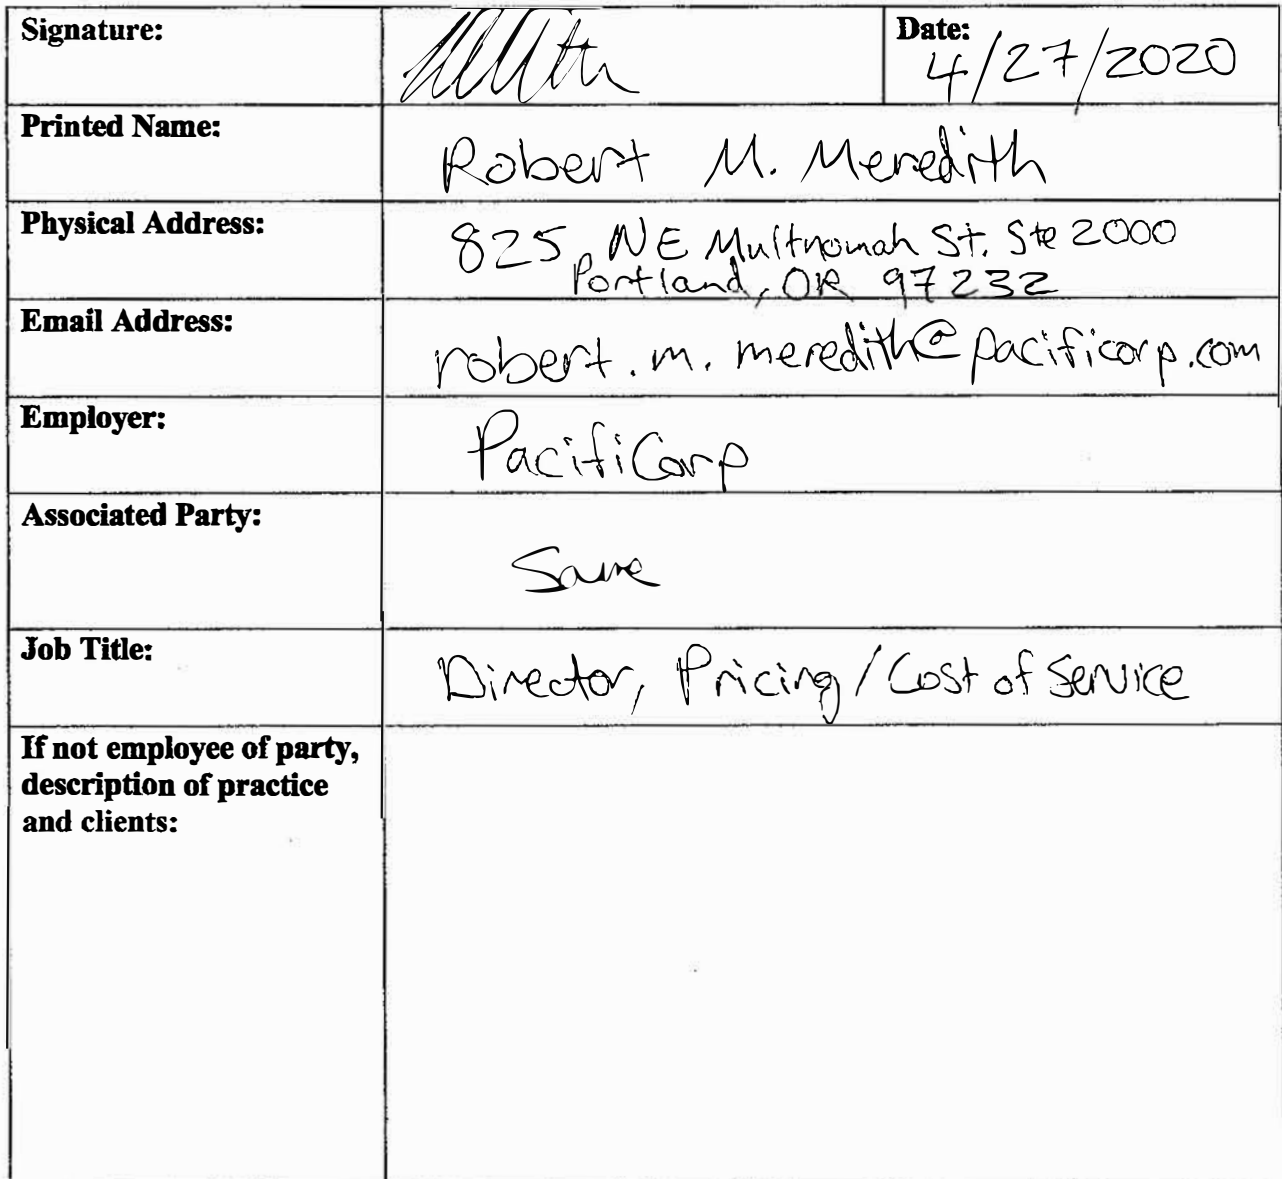 Signature:
Date:
4/27/2020
Printed Name:
Robert M. Meredith
Physical Address:
825 NE Multnomah St. Ste 2000
Portland, OR 97232
Email Address:
robert.m.meredith@pacificorp.com
Employer:
PacifiCorp
Associated Party:
Same
Job Title:
Director, Pricing/Cost of Service
If not employee of party,
description of practice
and clients: